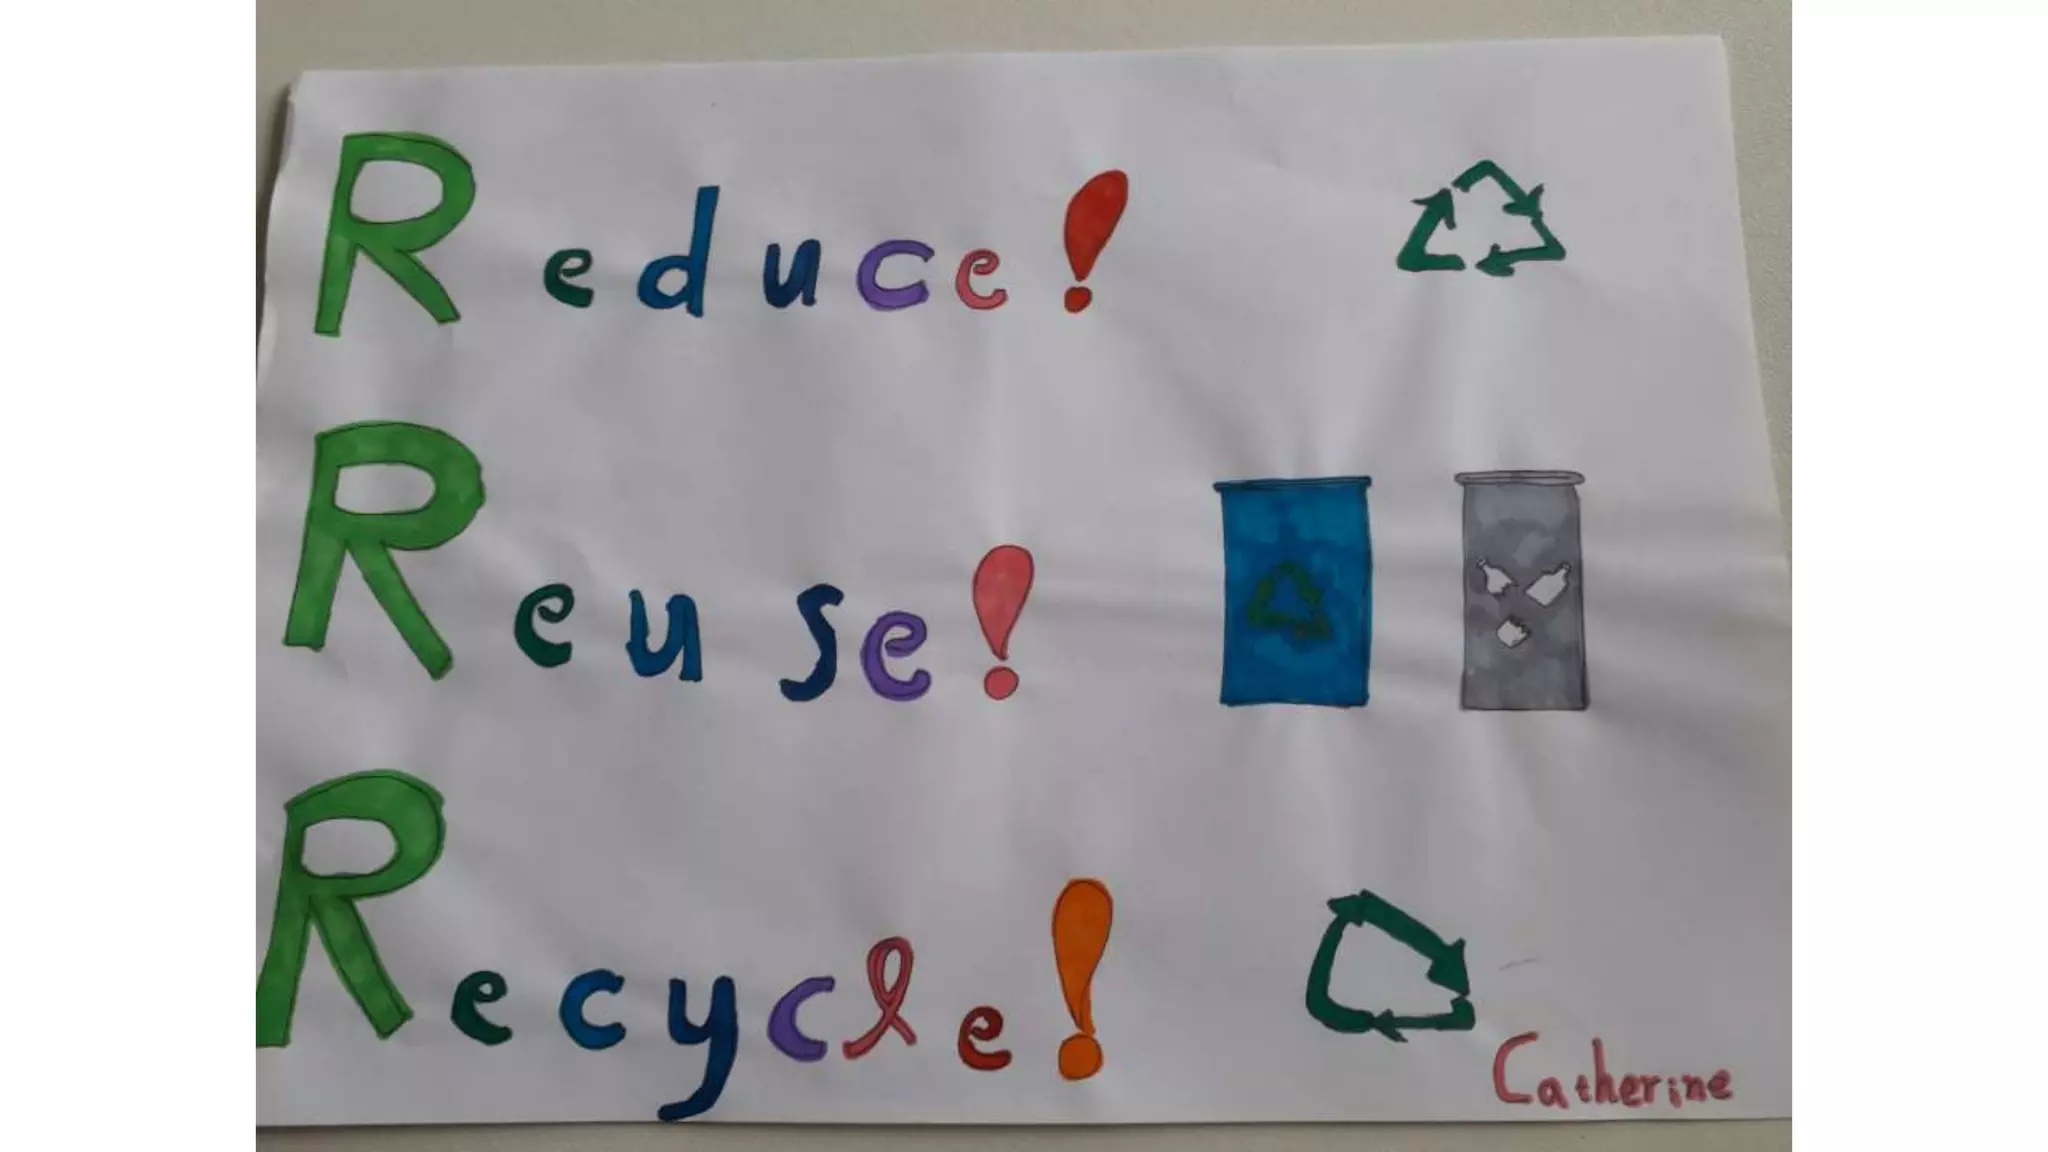 Reduce!
Reuse!
Recycle!
Catherine